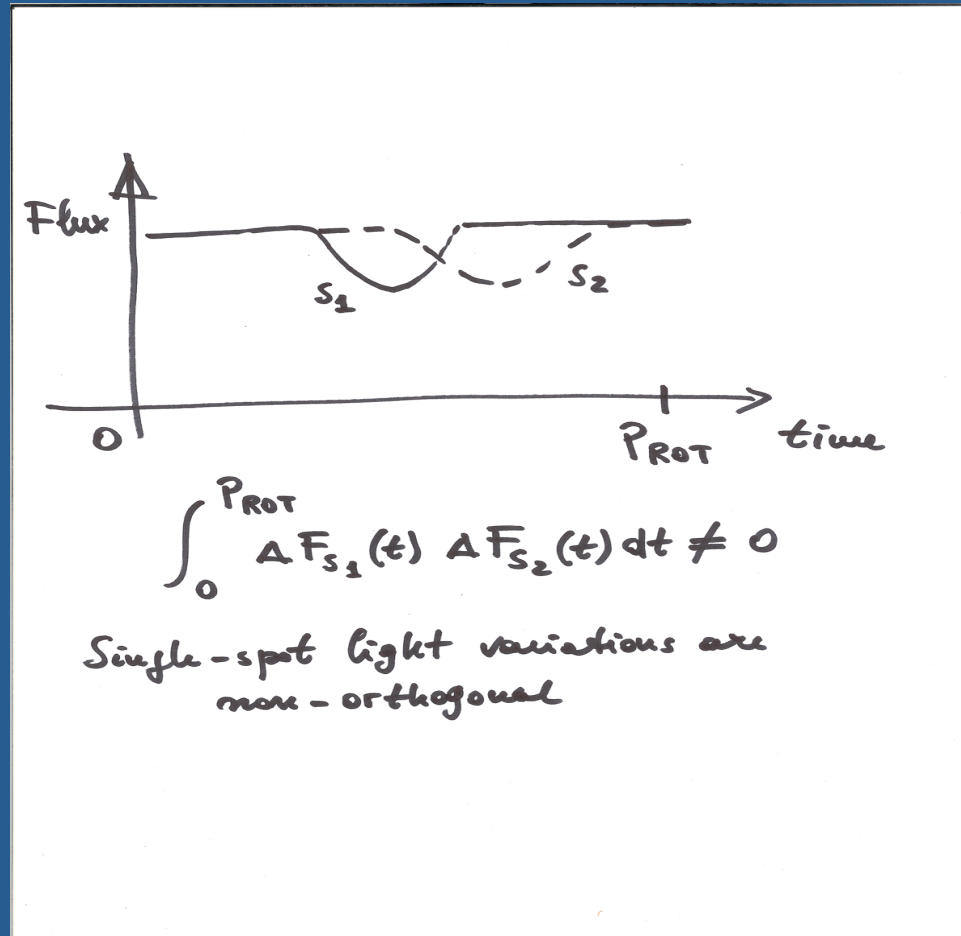 Flux
S₁
S₂
0
P_ROT
time
∫₀^{P_ROT} ΔF_{S₁}(t) ΔF_{S₂}(t) dt ≠ 0
Single-spot light variations are
non-orthogonal